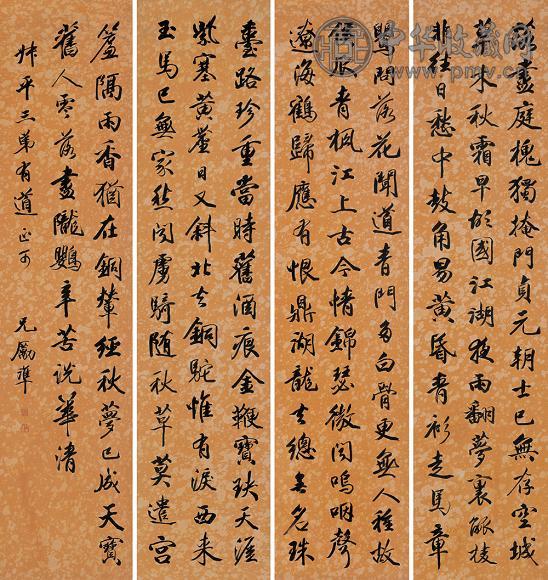 盡庭槐獨掩門貞元朝士已無存空城
水秋霜早故國江湖夜雨翻夢裏觚棱
非往日愁中鼓角易黃昏青衫走馬章
鶯問落花聞道青門多白骨更無人種故
侯瓜青楓江上古今情錦瑟微聞嗚咽聲
遼海鶴歸應有恨鼎湖龍去總無名珠
臺路珍重當時舊酒痕金鞭寶玦天涯
紫塞黃塵日又斜北去銅駝惟有淚西來
玉馬已無家愁聞虜騎隨秋草莫遣宮
簾隔雨香猶在銅輦經秋夢已成天寶
舊人零落盡隴鸚辛苦說華清
叔平三弟有道正可
兄勵準
中华收藏网
www.pmv.cn